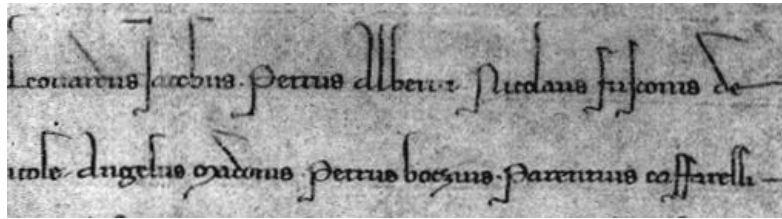 Leonardus Jacobus. Petrus Alberti. Nicolaus fusconis de
Angelus Petrus Parentius caffarelli